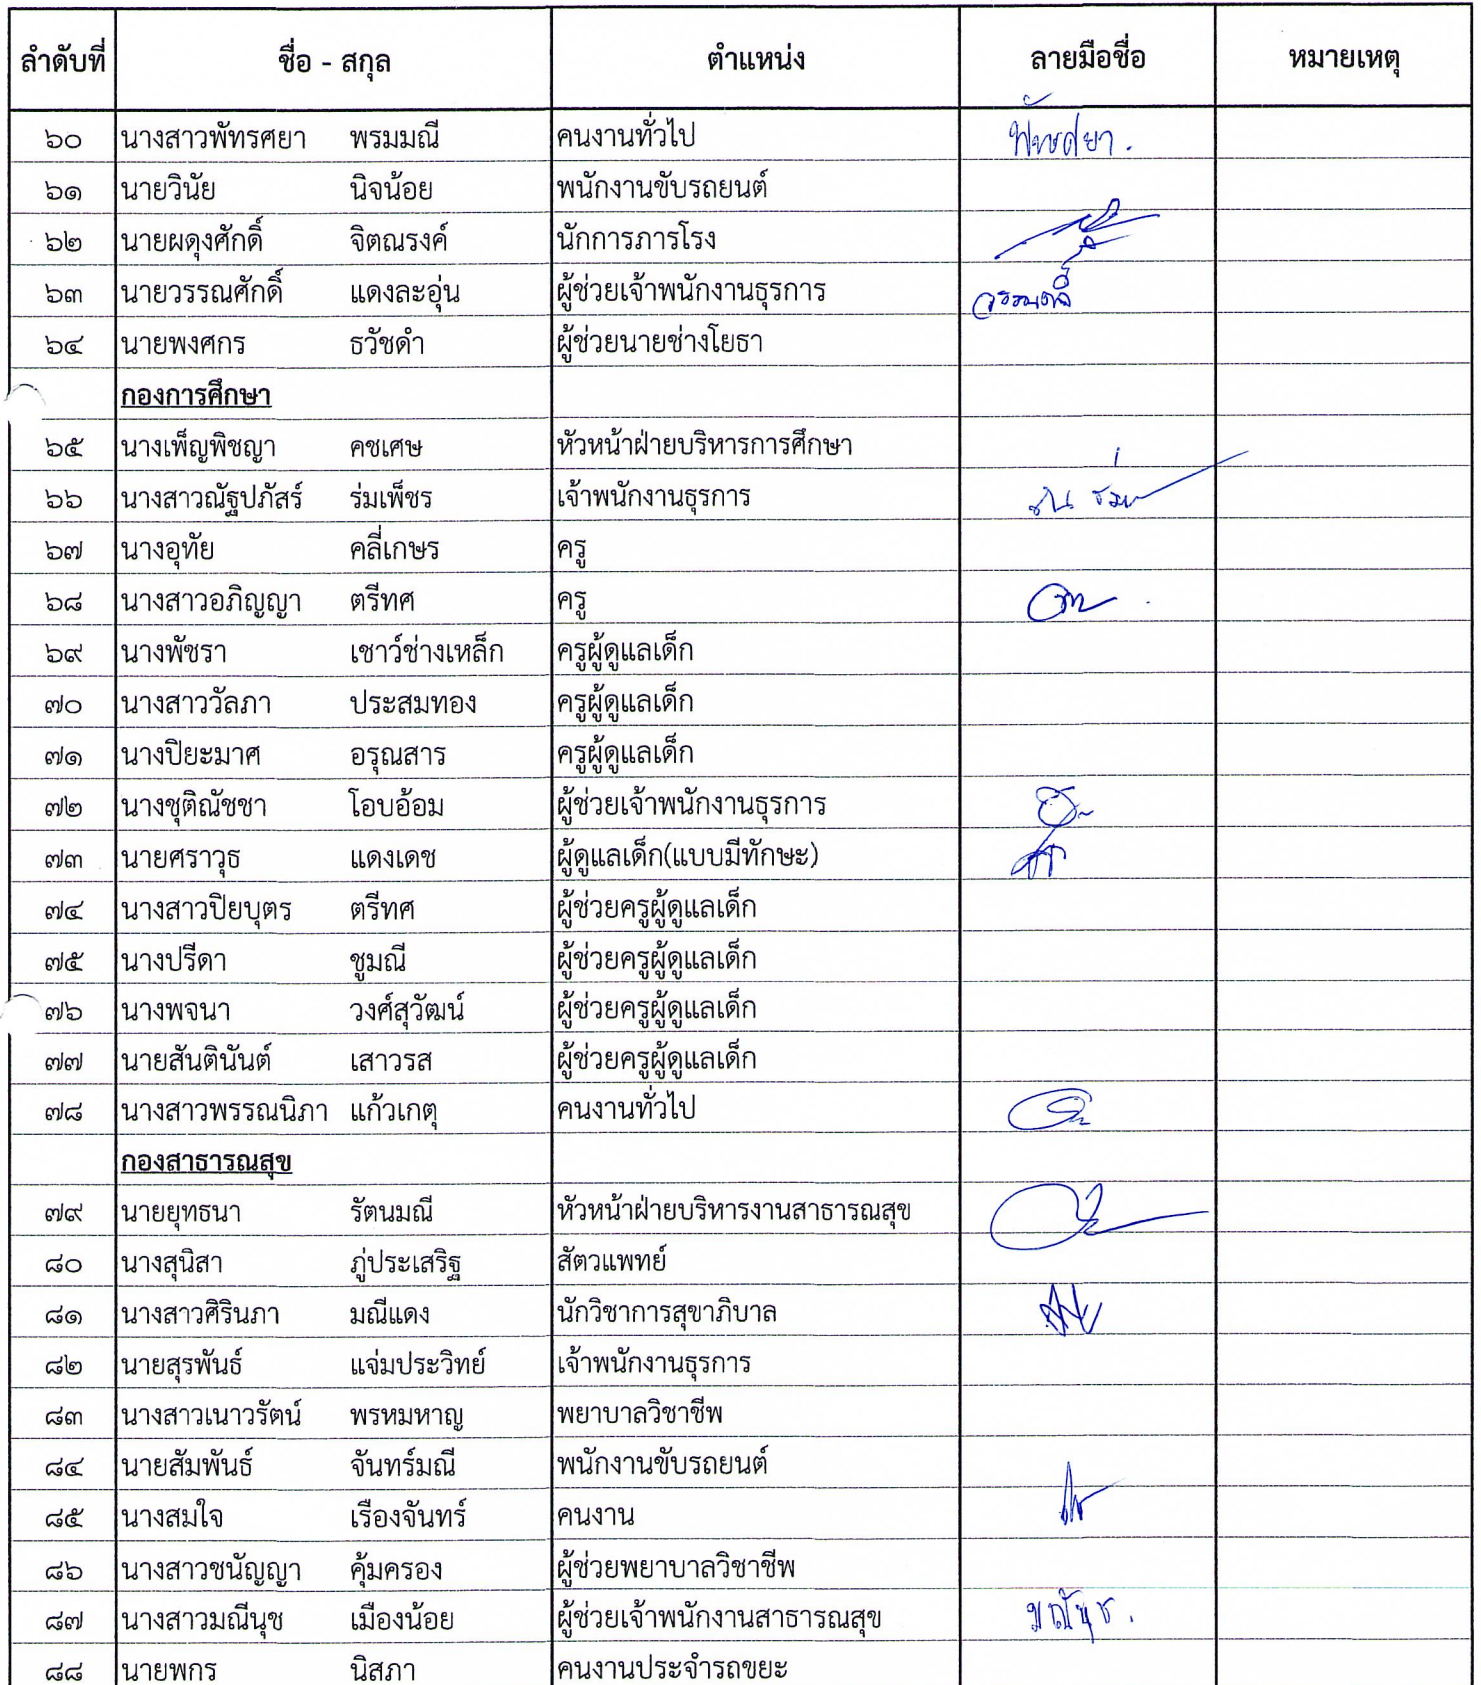 ลำดับที่ ชื่อ - สกุล ตำแหน่ง ลายมือชื่อ หมายเหตุ
๖๐ นางสาวพัทรศยา พรมมณี คนงานทั่วไป พัทรศยา.
๖๑ นายวินัย นิจน้อย พนักงานขับรถยนต์
๖๒ นายผดุงศักดิ์ จิตณรงค์ นักการภารโรง
๖๓ นายวรรณศักดิ์ แดงละอุ่น ผู้ช่วยเจ้าพนักงานธุรการ วรรณศักดิ์
๖๔ นายพงศกร ธวัชดำ ผู้ช่วยนายช่างโยธา
กองการศึกษา
๖๕ นางเพ็ญพิชญา คชเศษ หัวหน้าฝ่ายบริหารการศึกษา
๖๖ นางสาวณัฐปภัสร์ ร่มเพ็ชร เจ้าพนักงานธุรการ
๖๗ นางอุทัย คลี่เกษร ครู
๖๘ นางสาวอภิญญา ตรีทศ ครู
๖๙ นางพัชรา เชาว์ช่างเหล็ก ครูผู้ดูแลเด็ก
๗๐ นางสาววัลภา ประสมทอง ครูผู้ดูแลเด็ก
๗๑ นางปิยะมาศ อรุณสาร ครูผู้ดูแลเด็ก
๗๒ นางชุติณัชชา โอบอ้อม ผู้ช่วยเจ้าพนักงานธุรการ
๗๓ นายศราวุธ แดงเดช ผู้ดูแลเด็ก(แบบมีทักษะ)
๗๔ นางสาวปิยบุตร ตรีทศ ผู้ช่วยครูผู้ดูแลเด็ก
๗๕ นางปรีดา ชูมณี ผู้ช่วยครูผู้ดูแลเด็ก
๗๖ นางพจนา วงศ์สุวัฒน์ ผู้ช่วยครูผู้ดูแลเด็ก
๗๗ นายสันตินันต์ เสาวรส ผู้ช่วยครูผู้ดูแลเด็ก
๗๘ นางสาวพรรณนิภา แก้วเกตุ คนงานทั่วไป
กองสาธารณสุข
๗๙ นายยุทธนา รัตนมณี หัวหน้าฝ่ายบริหารงานสาธารณสุข
๘๐ นางสุนิสา ภู่ประเสริฐ สัตวแพทย์
๘๑ นางสาวศิรินภา มณีแดง นักวิชาการสุขาภิบาล
๘๒ นายสุรพันธ์ แจ่มประวิทย์ เจ้าพนักงานธุรการ
๘๓ นางสาวเนาวรัตน์ พรหมหาญ พยาบาลวิชาชีพ
๘๔ นายสัมพันธ์ จันทร์มณี พนักงานขับรถยนต์
๘๕ นางสมใจ เรืองจันทร์ คนงาน
๘๖ นางสาวชนัญญา คุ้มครอง ผู้ช่วยพยาบาลวิชาชีพ
๘๗ นางสาวมณีนุช เมืองน้อย ผู้ช่วยเจ้าพนักงานสาธารณสุข มณีนุช.
๘๘ นายพกร นิสภา คนงานประจำรถขยะ